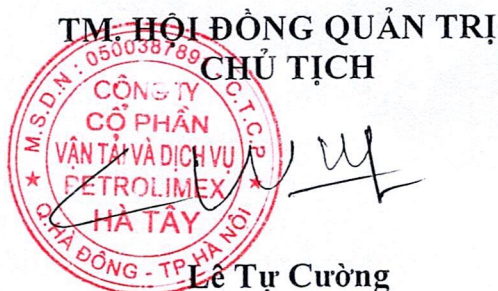 TM. HỘI ĐỒNG QUẢN TRỊ
CHỦ TỊCH
M.S.D.N: 050038789 - C.T.C.P
CÔNG TY
CỔ PHẦN
VẬN TẢI VÀ DỊCH VỤ
PETROLIMEX
HÀ TÂY
Q.HÀ ĐÔNG - TP.HÀ NỘI
Lê Tự Cường